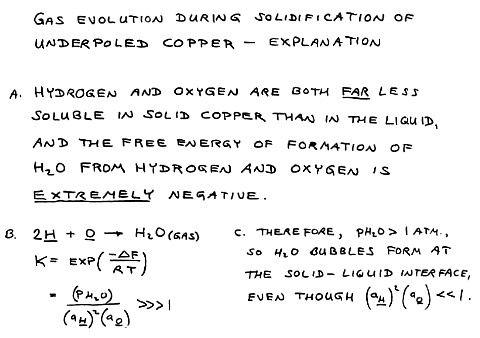 GAS EVOLUTION DURING SOLIDIFICATION OF
UNDERPOLED COPPER — EXPLANATION
A. HYDROGEN AND OXYGEN ARE BOTH FAR LESS
SOLUBLE IN SOLID COPPER THAN IN THE LIQUID,
AND THE FREE ENERGY OF FORMATION OF
H₂O FROM HYDROGEN AND OXYGEN IS
EXTREMELY NEGATIVE.
B. 2H + O → H₂O (GAS)
K = EXP(-ΔF/RT)
= (PH₂O)/(aH)²(aO) >>> 1
C. THEREFORE, PH₂O > 1 ATM.,
SO H₂O BUBBLES FORM AT
THE SOLID-LIQUID INTERFACE,
EVEN THOUGH (aH)²(aO) << 1.